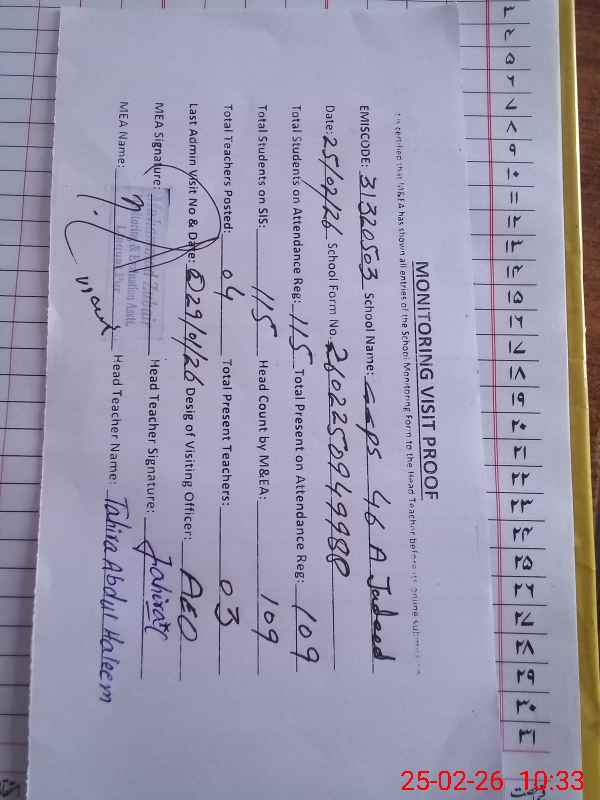 MONITORING VISIT PROOF
It is certified that M&EA has shown all entries of the School Monitoring Form to the Head Teacher before its online submission
EMISCODE: 31320503 School Name: GGPS 46 A Jadeed
Date: 25/02/26 School Form No. 2602250949988
Total Students on Attendance Reg: 115 Total Present on Attendance Reg: 109
Total Students on SIS: 115 Head Count by M&EA: 109
Total Teachers Posted: 04 Total Present Teachers: 03
Last Admin Visit No & Date: 29/01/26 Desig of Visiting Officer: AEO
MEA Signature: Head Teacher Signature: Tahira
MEA Name: Head Teacher Name: Tahira Abdul Haleem
Monitoring & Evaluation Asstt.
25-02-26 10:33